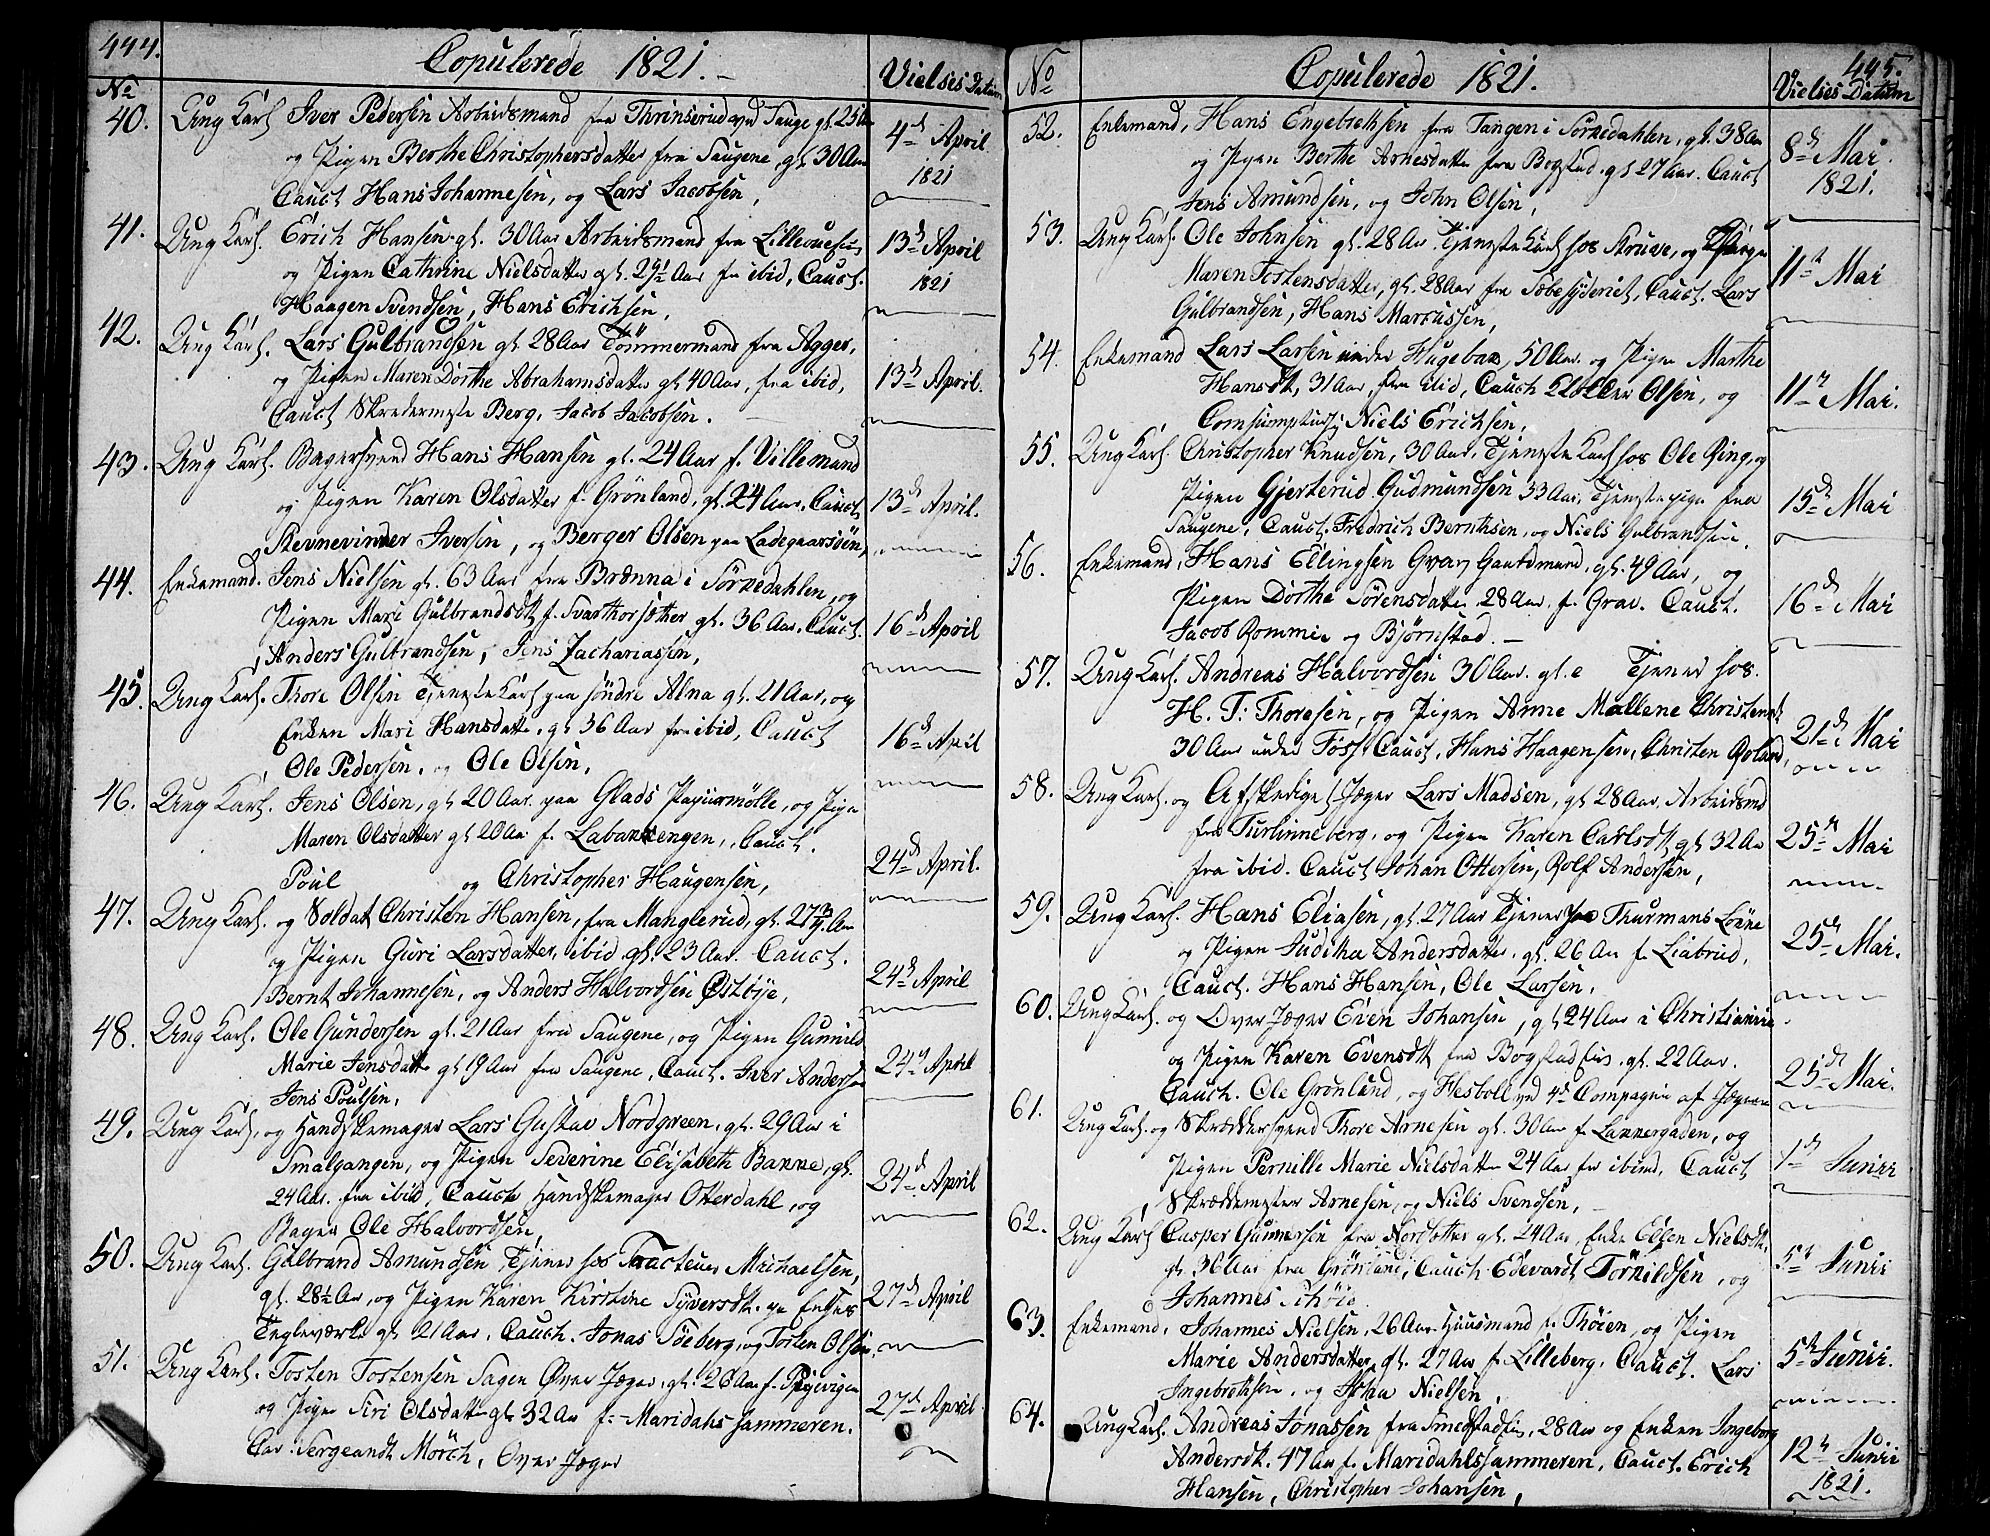 444.
Copulerede 1821.
No
Vielses Datum
40. Ung Karl Iver Pedersen Arbeidsmand fra Thrinserud ved Sauge gl. 25 Aar
og Pigen Berthe Christophersdatter fra Saugene, gl. 30 Aar
Cauct Hans Johannesen, og Lars Jacobsen,
4de April
1821
41. Ung Karl. Erich Hansen gl. 30 Aar Arbeidsmand fra
og Pigen Cathrine Nielsdatter gl. 29½ Aar fra ibid, Cauct.
Haagen Svendsen, Hans Erichsen,
13de April
1821
42. Ung Karl. Lars Gulbrandsen gl 28 Aar Tömmermand fra Agger,
og Pigen Maren Dorthe Abrahamsdatter gl 40 Aar, fra ibid,
Cauct Skredermester Berg, Jacob Jacobsen.
13de April.
43. Ung Karl. Bagersvend Hans Hansen gl. 24 Aar f. Villemand
og Pigen Karen Olsdatter f. Grönland, gl. 24 Aar, Cauct.
Stevnevidner Iversen, og Berger Olsen paa Ladegaardsöen,
13de April.
44. Enkemand. Jens Nielsen gl. 63 Aar fra Brænna i Sörkedahlen, og
Pigen Mari Gulbrandsdt f. Svarthorsæther gl. 36 Aar. Cauct.
Anders Gulbrandsen, Jens Zachariassen,
16de April
45. Ung Karl. Thore Olsen Tjenestekarl paa söndre Alna gl. 21 Aar, og
Enken Mari Hansdatter, gl 36 Aar fra ibid, Cauct
Ole Pedersen, og Ole Olsen,
16de April
46. Ung Karl. Jens Olsen, gl 20 Aar paa Glads Papiirmölle, og Pige
Maren Olsdatter gl 20 Aar f. Labanksengen, Cauct.
Poul og Christopher Haugensen,
24de April.
47. Ung Karl. og Soldat Christen Hansen, fra Manglerud, gl. 27¾ Aar
og Pigen Guri Larsdatter, ibid gl. 23 Aar. Cauct.
Bernt Johannesen, og Anders Halvordsen Østbye,
24de April
48. Ung Karl. Ole Gundersen gl. 21 Aar fra Saugene, og Pigen Gunnild
Marie Jensdatter gl 19 Aar fra Saugene, Cauct. Iver Andersen
Jens Poulsen,
24de April
49. Ung Karl, og Handskemager Lars Gustav Nordgreen, gl. 29 Aar i
Smalgangen, og Pigen Severine Elisabeth Banne, gl.
24 Aar. fra ibid, Cauct Handskemager Otterdahl, og
Bager Ole Halvordsen,
24de April
50. Ung Karl. Gulbrand Amundsen Tjener hos Tracteur Michaelsen,
gl. 28½ Aar, og Pigen Karen Kirstine Syversdt. pa Enkes
Teglværk gl 21 Aar, Cauct. Jonas Söeberg, og Tosten Olsen,
27de April
51. Ung Karl. Tosten Tostensen Sagen Over Jæger, gl. 26 Aar f. Pipervigen
og Pige Siri Olsdatter gl 32 Aar f. Maridahlshammeren.
Cav: Sergeandt Mörch, Over Jæger
27de April
445.
No
Copulerede 1821.
Vielses Datum
52. Enkemand, Hans Engebretsen fra Tangen i Sörkedahlen, gl. 38 Aar
og Pigen Berthe Arnesdatter fra Bogstad gl 27 Aar. Cauct
Jens Amundsen, og John Olsen,
8de Mai.
1821.
53. Ung Karl. Ole Johnsen gl. 28 Aar Tjenestekarl hos Struve, og Pigen
Maren Tostensdatter, gl. 28 Aar fra Sæbesyderiet, Cauct. Lars
Gulbrandsen, Hans Marcussen,
11te Mai
54. Enkemand Lars Larsen under Hugebax, 50 Aar og Pigen Marthe
Hansdt, 31 Aar, fra ibid, Cauct Olsen, og
Niels Erichsen,
11te Mai.
55. Ung Karl. Christopher Knudsen, 30 Aar, Tjeneste Karl hos Ole Ring, og
Pigen Gjerterud Gudmundsen 33 Aar, Tjenestepige fra
Saugene, Cauct. Fredrich Bernthsen, og Niels Gulbrandsen,
15de Mai
56. Enkemand, Hans Ellingsen Gvarj Gaardmand, gl. 49 Aar, og
Pigen Dorthe Sörensdatter 28 Aar f. Grav. Cauct.
Jacob Rommie og Björnstad.
16de Mai
57. Ung Karl. Andreas Halvordsen 30 Aar. gl. Tjener hos.
H. T: Thoresen, og Pigen Anne Mallene Christensdt
30 Aar under Tost, Cauct, Hans Haagensen, Christen Roland,
21de Mai
58. Ung Karl. og Afskediget Jæger Lars Madsen, gl 28 Aar, Arbeidsmd
fra Turlinneberg, og Pigen Karen Carlsdt gl 32 Aar
fra ibid. Cauct Johan Ottersen, Rolf Andersen,
25de Mai
59. Ung Karl. Hans Eliasen, gl. 27 Aar Tjener paa Thurmans Lökke
og Pigen Juditha Andersdatter, gl. 26 Aar f. Liabrud,
Cauct. Hans Hansen, Ole Larsen,
25de Mai.
60. Ung Karl. og Over Jæger Even Johansen, gl 24 Aar i Christiania
og Pigen Karen Evensdt fra Bogstad gl. 22 Aar.
Cauct. Ole Grönlund, og Hesboll ved 4de Compagnie af Jægerne
25de Mai.
61. Ung Karl. og Skreddersvend Thore Arnesen gl. 30 Aar f. Lakkergaden, og
Pigen Pernille Marie Nielsdatter 24 Aar fra ibimd, Cauct
Skreddemester Arnesen, og Niels Svendsen,
1de Junii
62. Ung Karl Casper Gunnersen fra Nordsother gl. 24 Aar, Enke Ellen Nielsdt,
gl. 36 Aar fra Grönland, Cauct Edevardt Törkildsen, og
Johannes Schöie
5te Junii
63. Enkemand, Johannes Nielsen, 26 Aar Huusmand f. Thöien, og Pigen
Marie Andersdatter gl. 27 Aar f. Lilleberg. Cauct. Lars
Ingebretsen, og Nielsen,
5te Junii.
64. Ung Karl. Andreas Jonassen fra Smedstad, 28 Aar og Enken Ingeborg
Andersdt. 47 Aar f. Maridahlshammeren, Cauct. Erich
Hansen, Christopher Johansen,
12te Junii
1821.